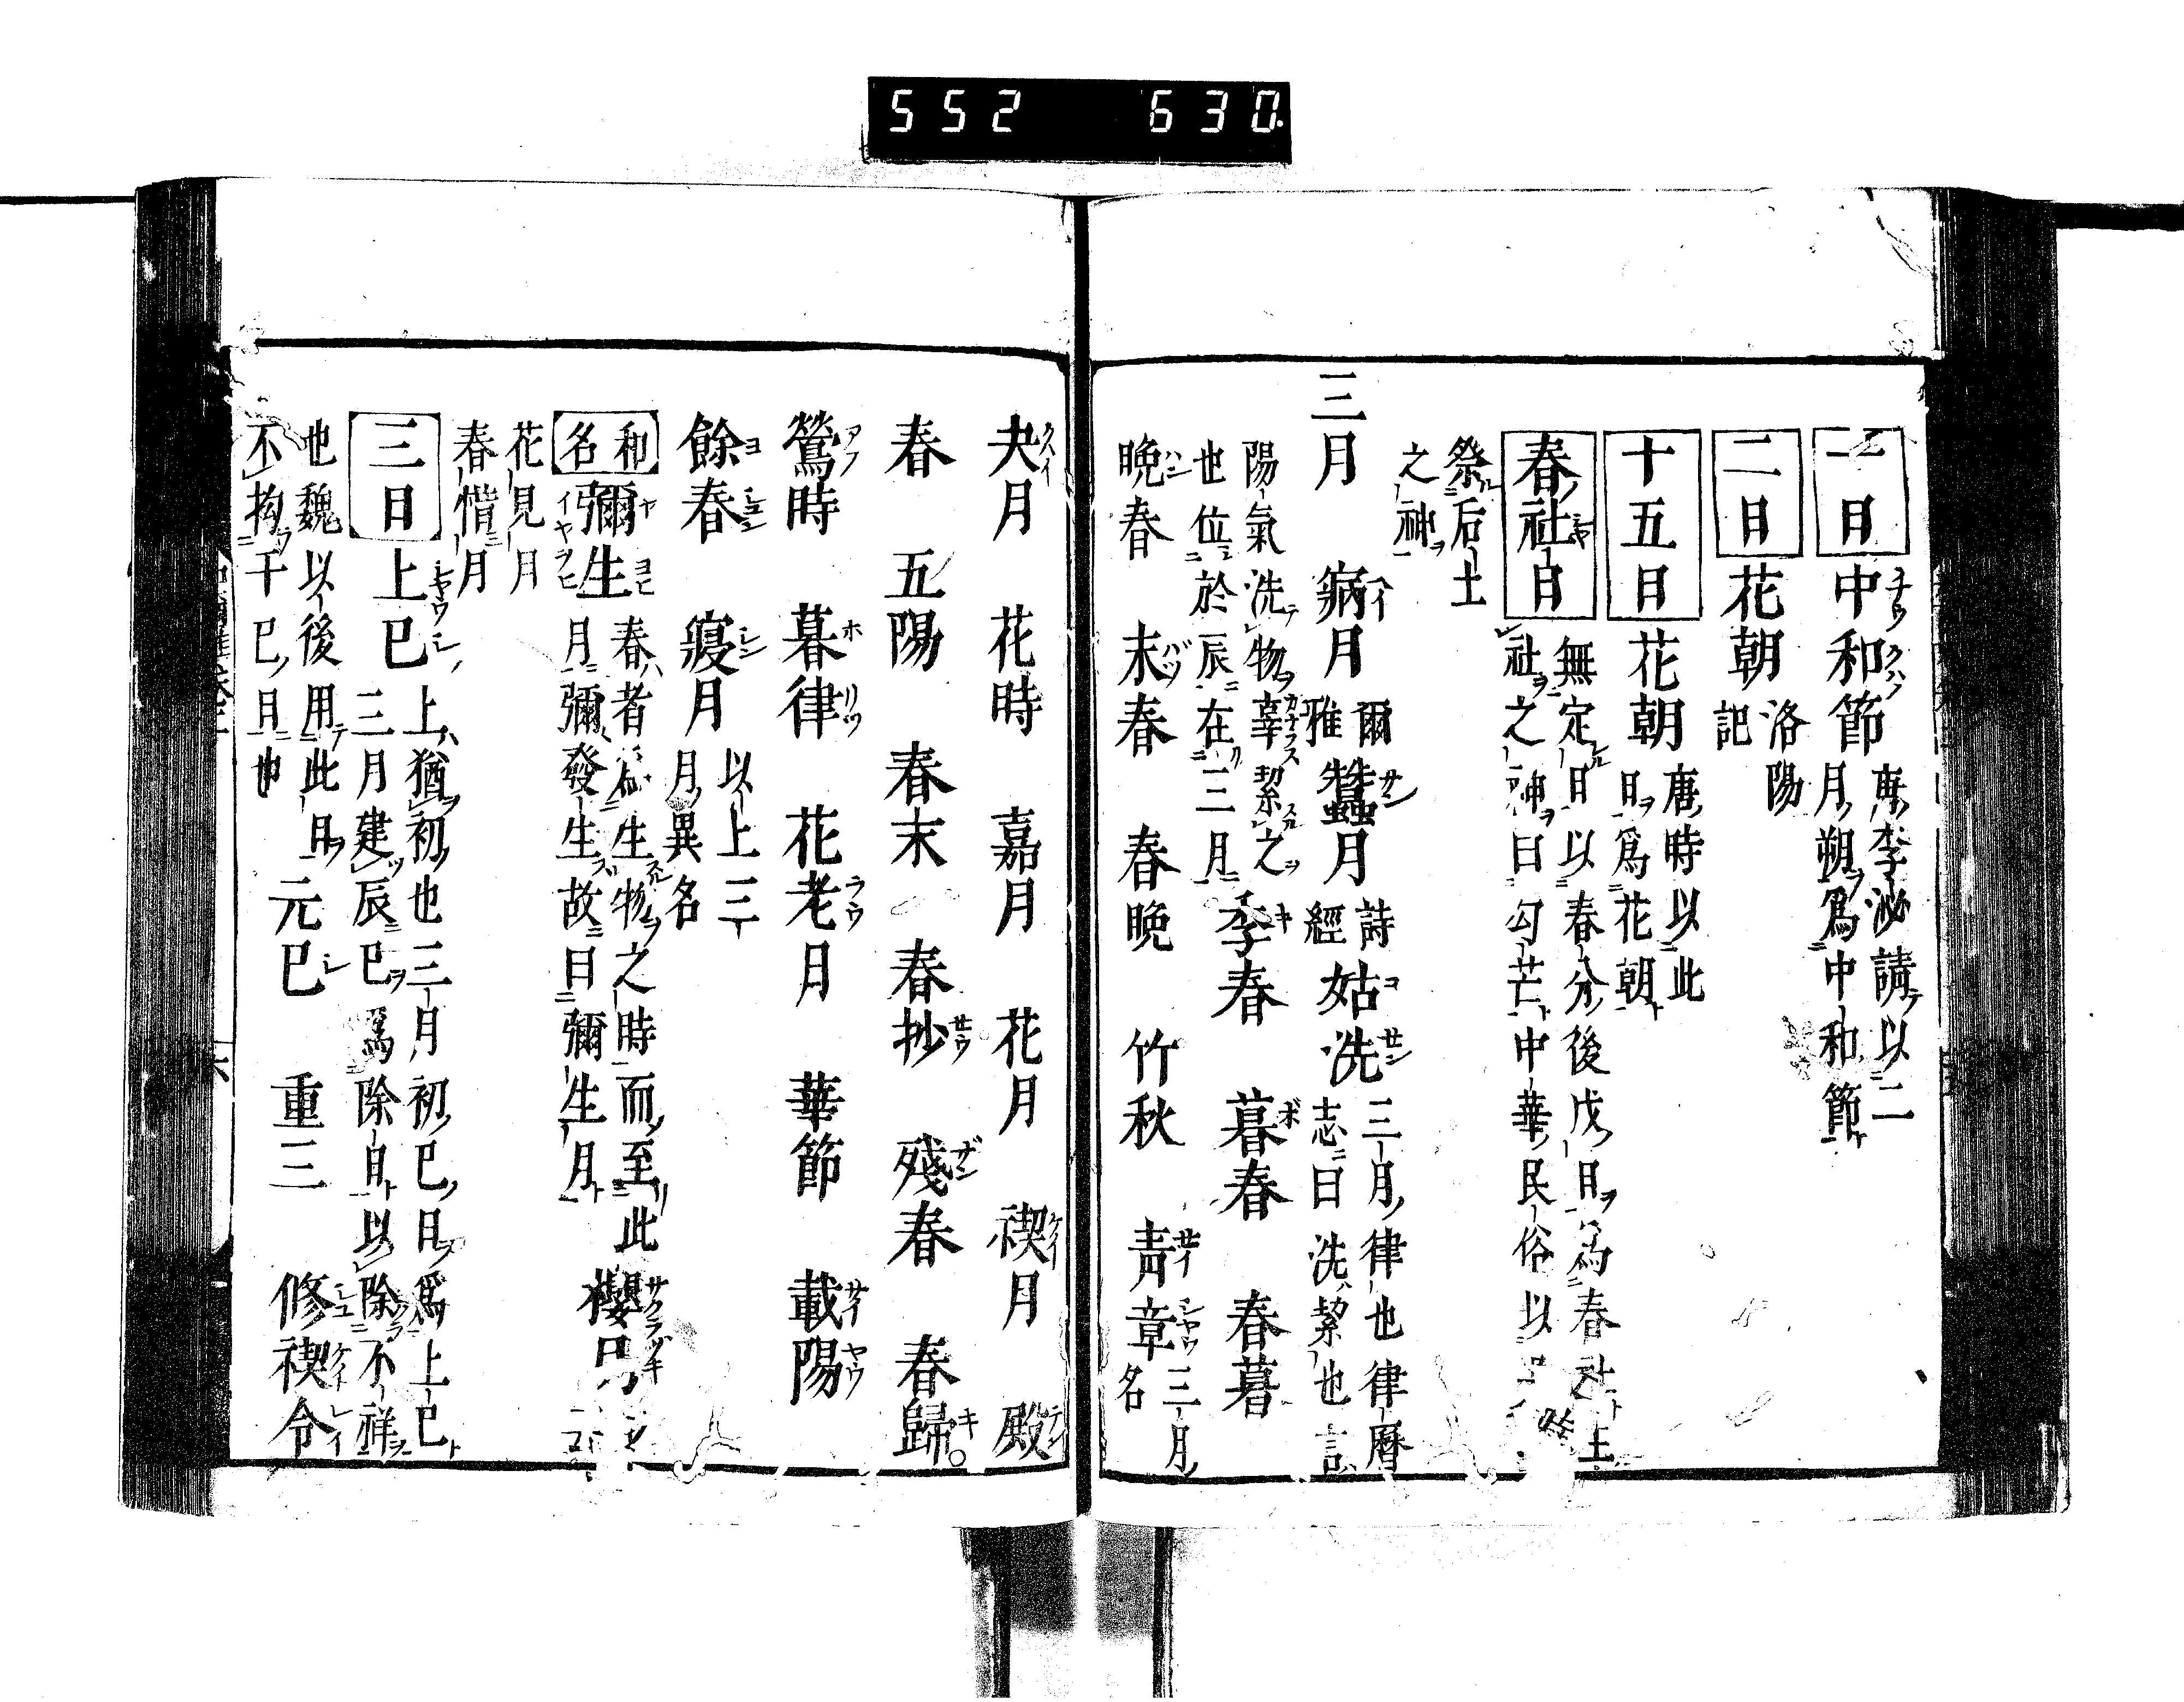 552 630
一日 中和節 唐李泌請以二
月朔爲中和節
二日 花朝 洛陽
記
十五日 花朝 唐時以此
日爲花朝
春社日 無定日以春分後戊日爲春社土
社之神曰勾芒中華民俗以
祭后土
之神
三月 病月 爾
雅 蠶月 詩
經 姑洗 三月律也律曆
志曰洗絜也言
陽氣洗物辜絜之
也位於辰在三月 季春 暮春 春暮
晩春 末春 春晩 竹秋 青章 三月
名
夬月 花時 嘉月 花月 禊月 殿
春 五陽 春末 春抄 殘春 春歸
鶯時 暮律 花老月 華節 載陽
餘春 寎月 以上三
月異名
和
名 彌生 春者 生物之時而至此
月彌發生故曰彌生月 櫻月
花見月
春惜月
三日 上巳 上猶初也三月初巳日爲上巳
三月建辰巳爲除日以除不祥
也魏以後用此日
不拘干巳日也 元巳 重三 修禊令